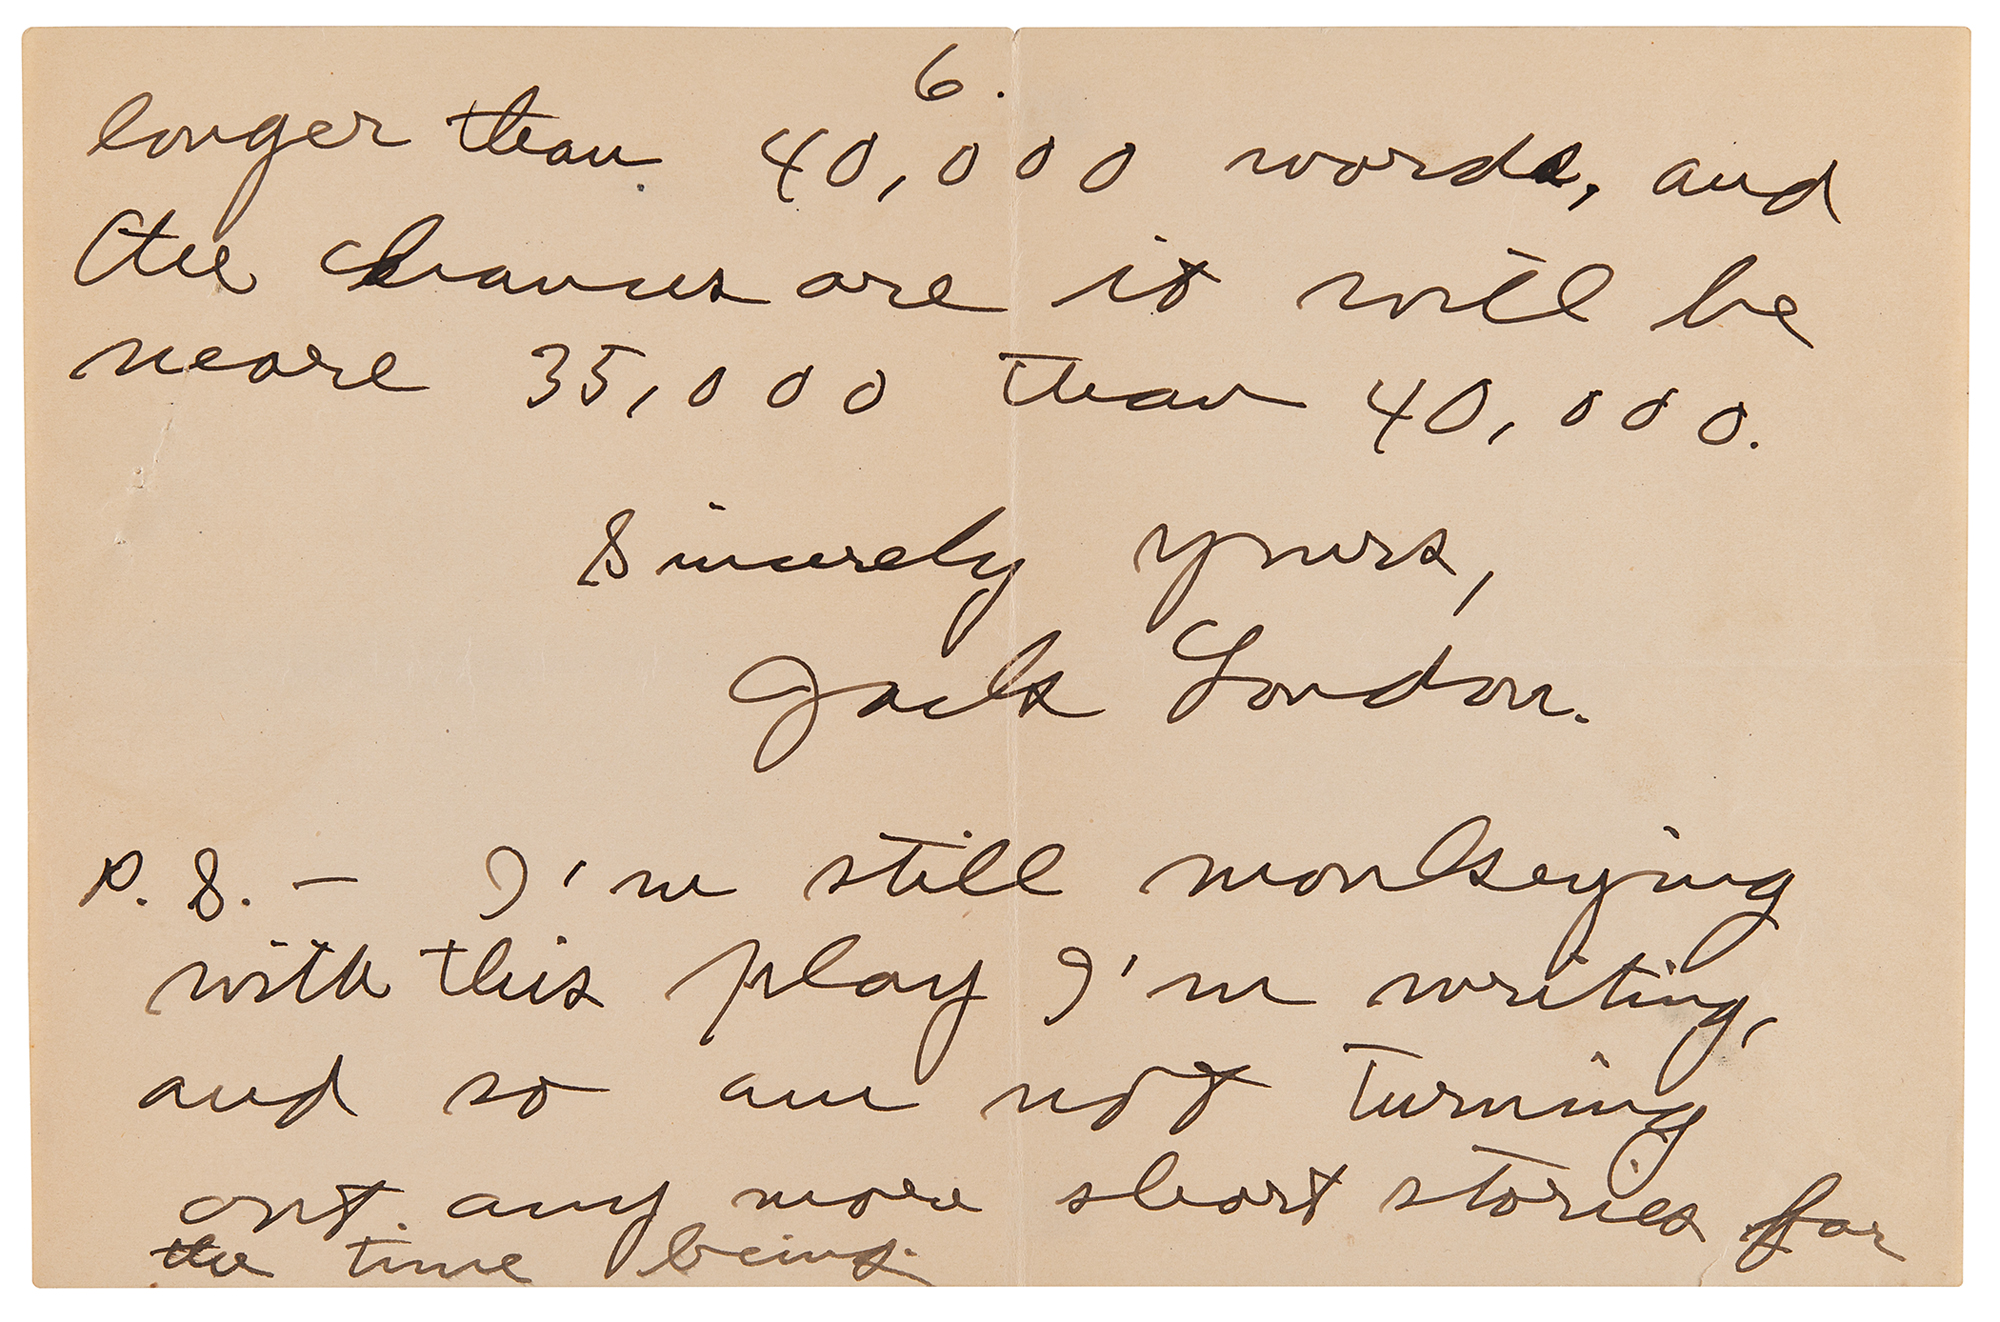 6.
longer than 40,000 words, and
the chances are it will be
neare 35,000 than 40,000.
Sincerely yours,
Jack London.
P.S. — I'm still monkeying
with this play I'm writing,
and so am not turning
out any more short stories for
the time being.